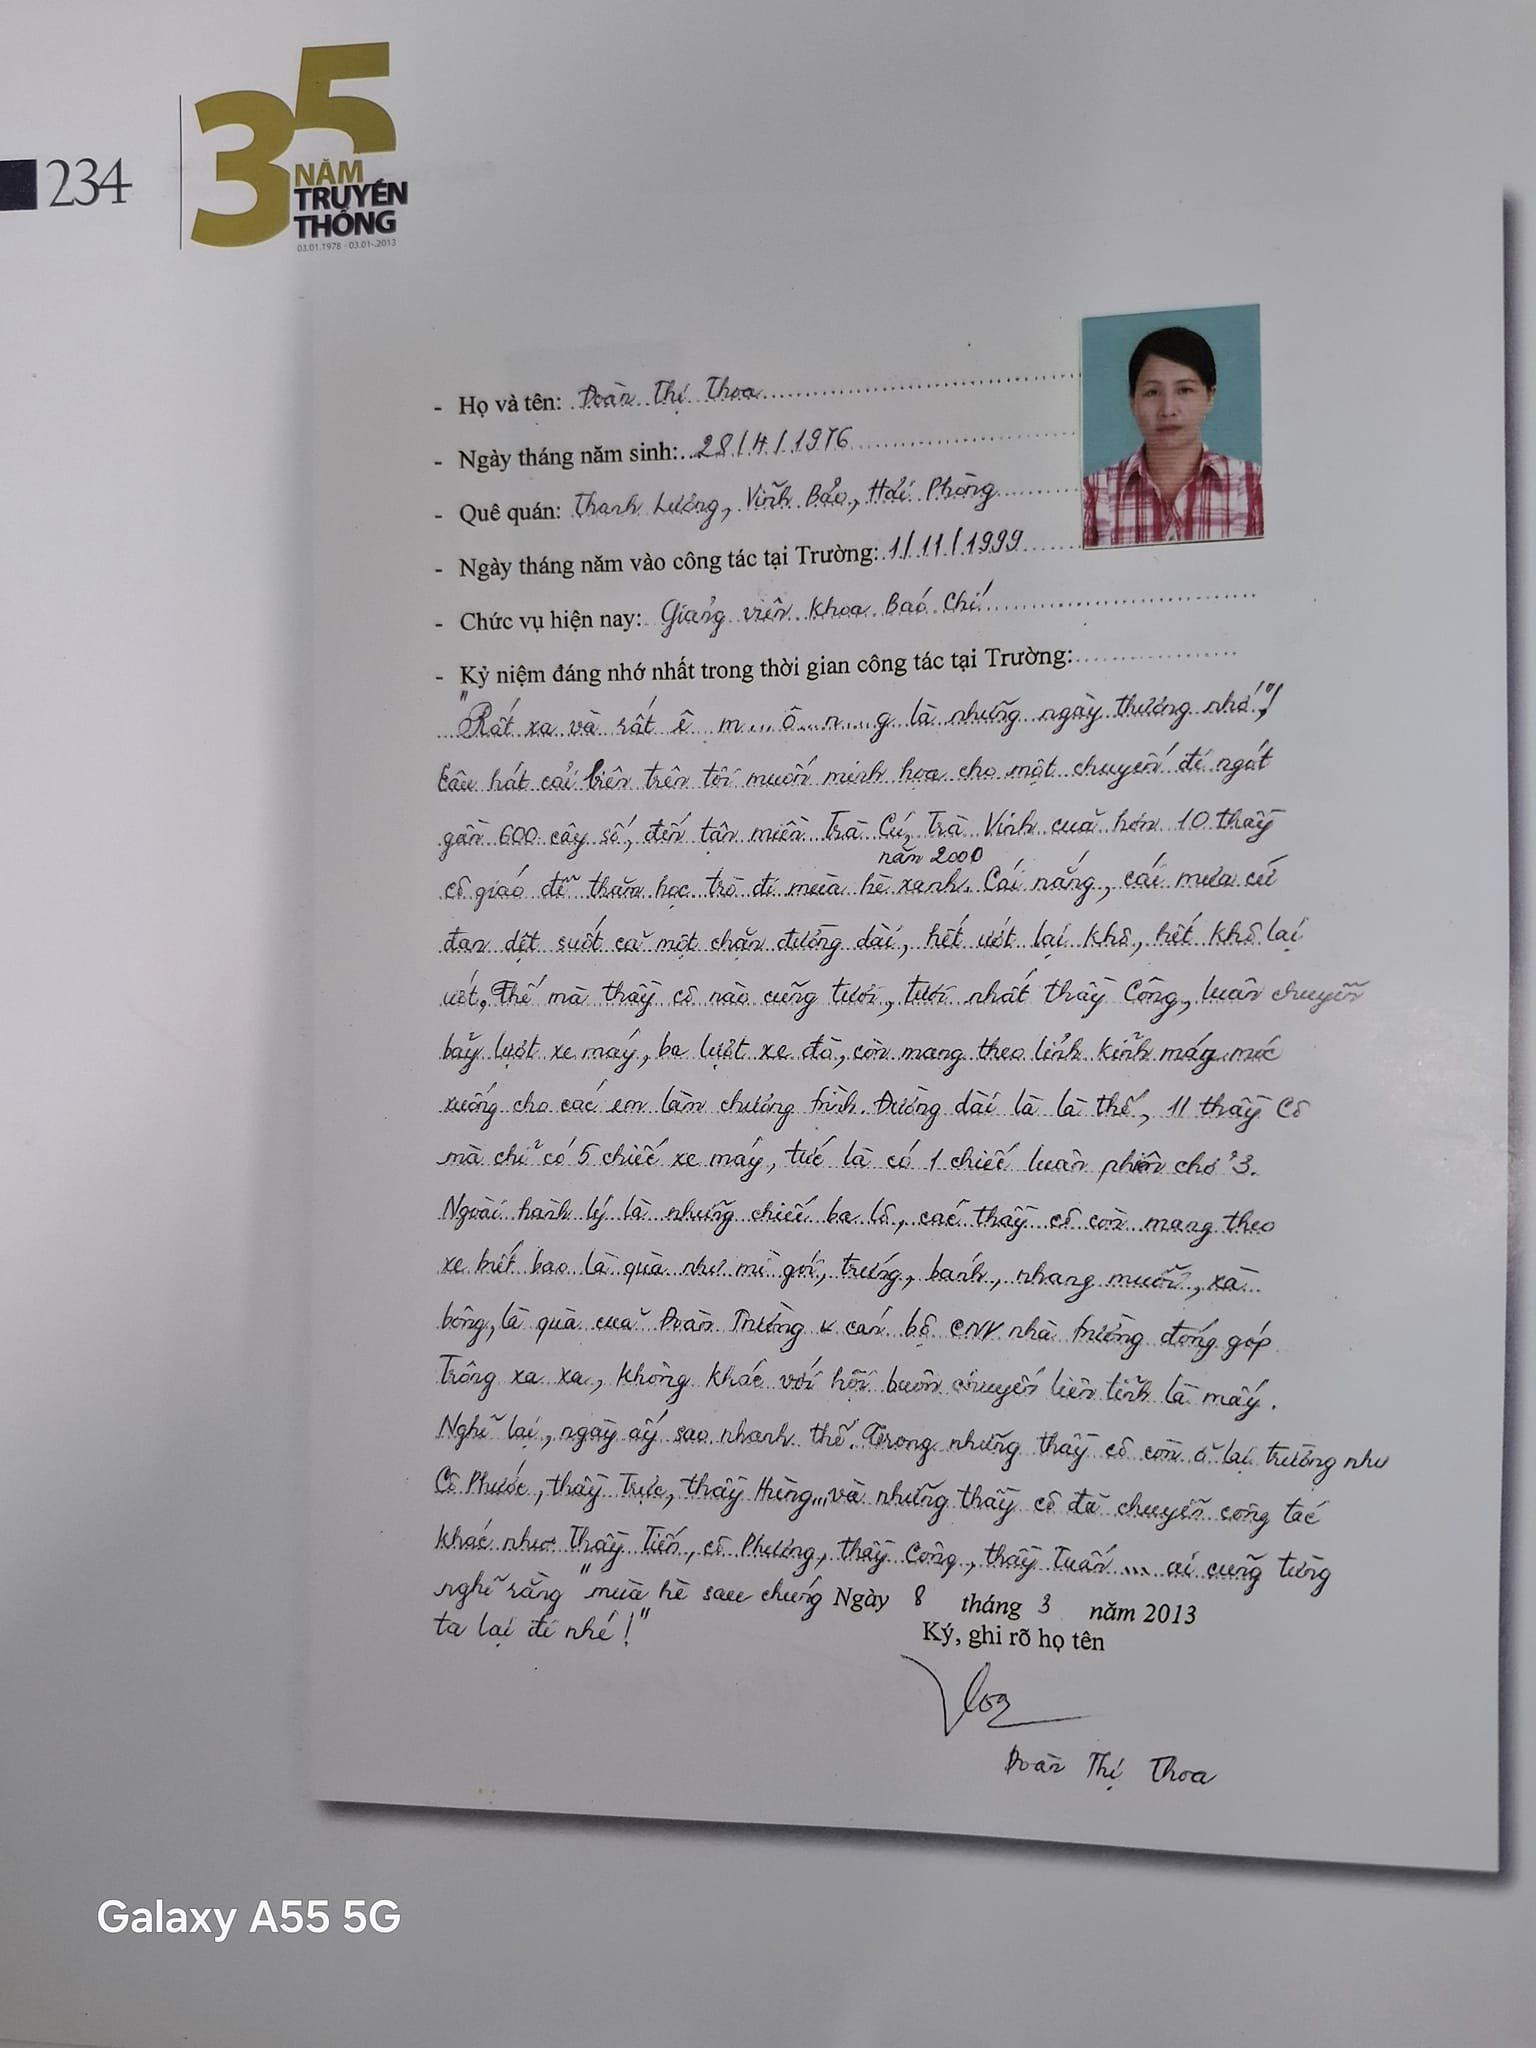 234
35
NĂM
TRUYỀN
THỐNG
03.01.1978 - 03.01-.2013
- Họ và tên: Đoàn Thị Thoa
- Ngày tháng năm sinh: 28/4/1976
- Quê quán: Thanh Lương, Vĩnh Bảo, Hải Phòng
- Ngày tháng năm vào công tác tại Trường: 1/11/1999
- Chức vụ hiện nay: Giảng viên khoa Báo Chí
- Kỷ niệm đáng nhớ nhất trong thời gian công tác tại Trường:
"Rất xa và rất ê m... ô... n... g là những ngày thương nhớ"!
Câu hát cải biên trên tôi muốn minh họa cho một chuyến đi ngót
gần 600 cây số, đến tận miền Trà Cú, Trà Vinh của hơn 10 thầy
năm 2000
cô giáo để thăm học trò đi mùa hè xanh. Cái nắng, cái mưa cứ
đan dệt suốt cả một chặn đường dài, hết ướt lại khô, hết khô lại
ướt. Thế mà thầy cô nào cũng tươi, tươi nhất thầy Công, luân chuyển
bảy lượt xe máy, ba lượt xe đò, còn mang theo linh kiện máy móc
xuống cho các em làm chương trình. Đường dài là là thế, 11 thầy cô
mà chỉ có 5 chiếc xe máy, tức là có 1 chiếc luân phiên chở 3.
Ngoài hành lý là những chiếc ba lô, các thầy cô còn mang theo
xe biết bao là quà như mì gói, trứng, bánh, nhang muỗi, xà
bông, là quà của Đoàn Trường & cán bộ CNV nhà trường đóng góp
Trông xa xa, không khác với hội buôn chuyến liên tỉnh là mấy.
Nghĩ lại, ngày ấy sao nhanh thế. Trong những thầy cô còn ở lại trường như
Cô Phước, thầy Trực, thầy Hùng... và những thầy cô đã chuyển công tác
khác như Thầy Tiến, cô Phương, thầy Công, thầy Tuấn ... ai cũng từng
nghĩ rằng "mùa hè sau chúng Ngày 8 tháng 3 năm 2013
ta lại đi nhé!"
Ký, ghi rõ họ tên
Thoa
Đoàn Thị Thoa
Galaxy A55 5G